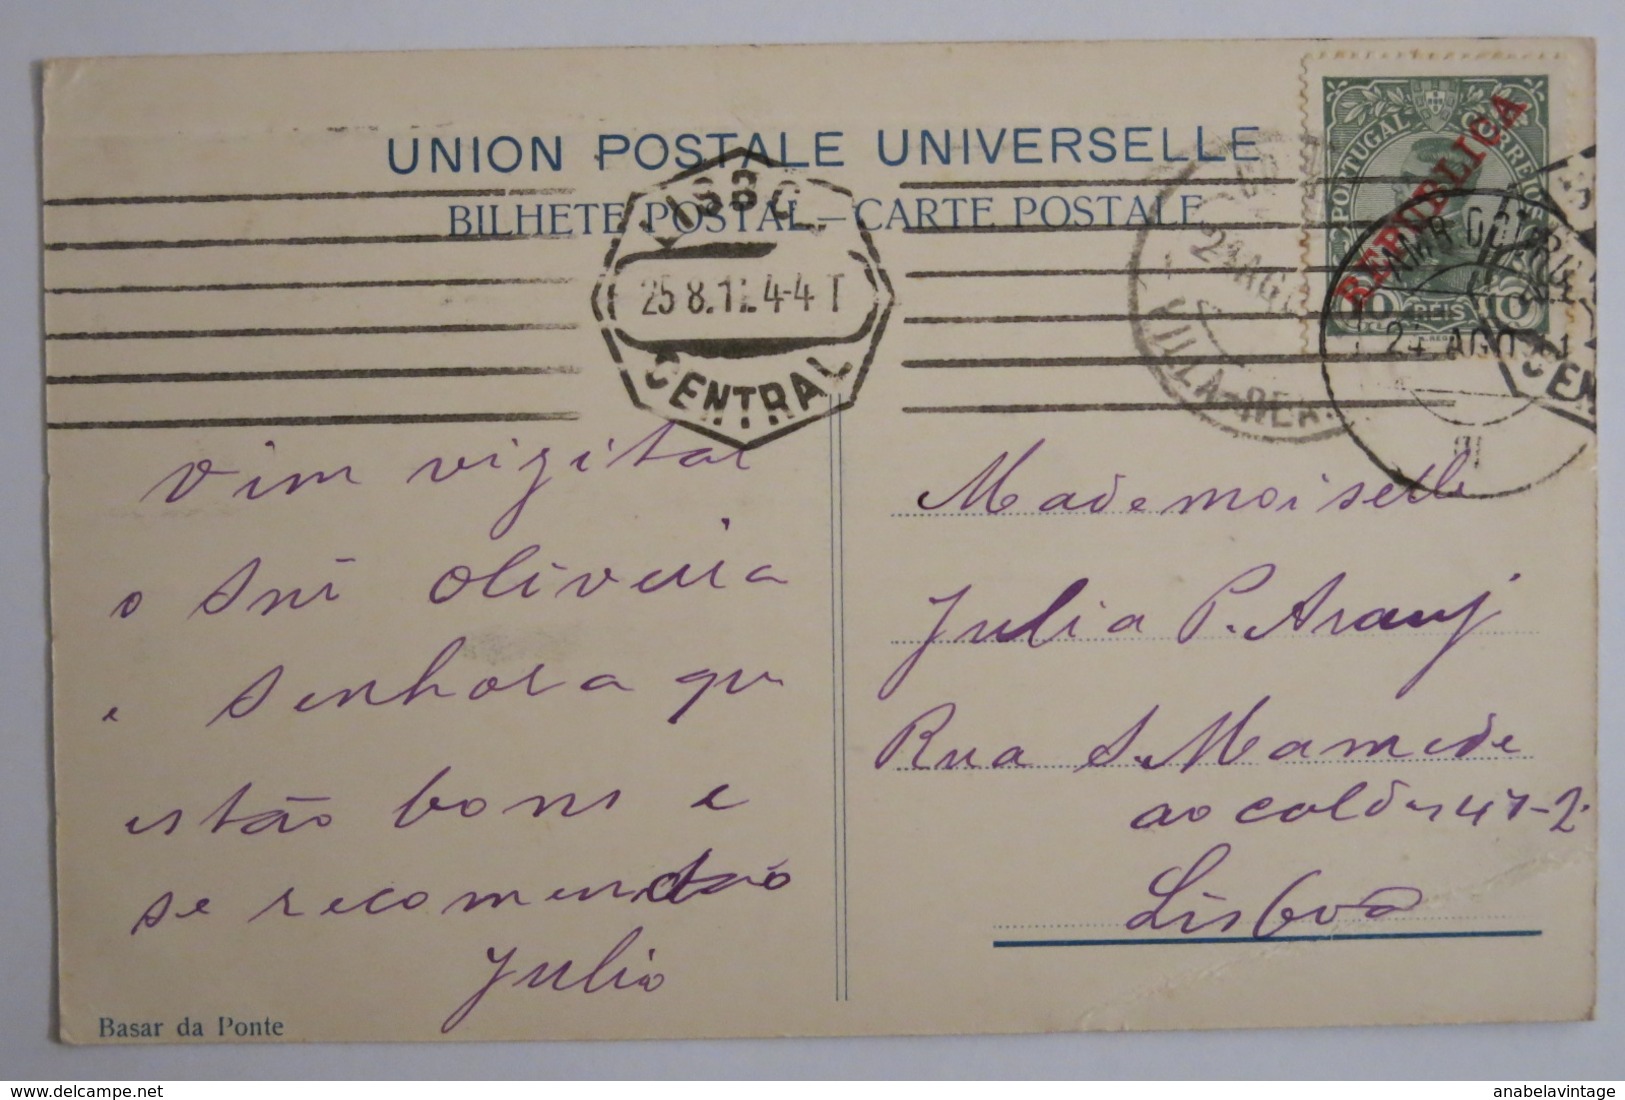 UNION POSTALE UNIVERSELLE
BILHETE POSTAL — CARTE POSTALE
PORTUGAL CORREIOS
REPUBLICA
10 REIS 10
LISBO
25 8.1 4-4 T
CENTRAL
24 AGO
VILLA-REA
AMB
24 AGO
CEN
vim vizitar
o Snr Oliveira
e Senhora que
estão bons e
se recomendão
Julio
Mademoiselle
Julia P. Arauj
Rua S. Mamede
ao caldas 41-2º
Lisboa
Basar da Ponte
anabelavintage